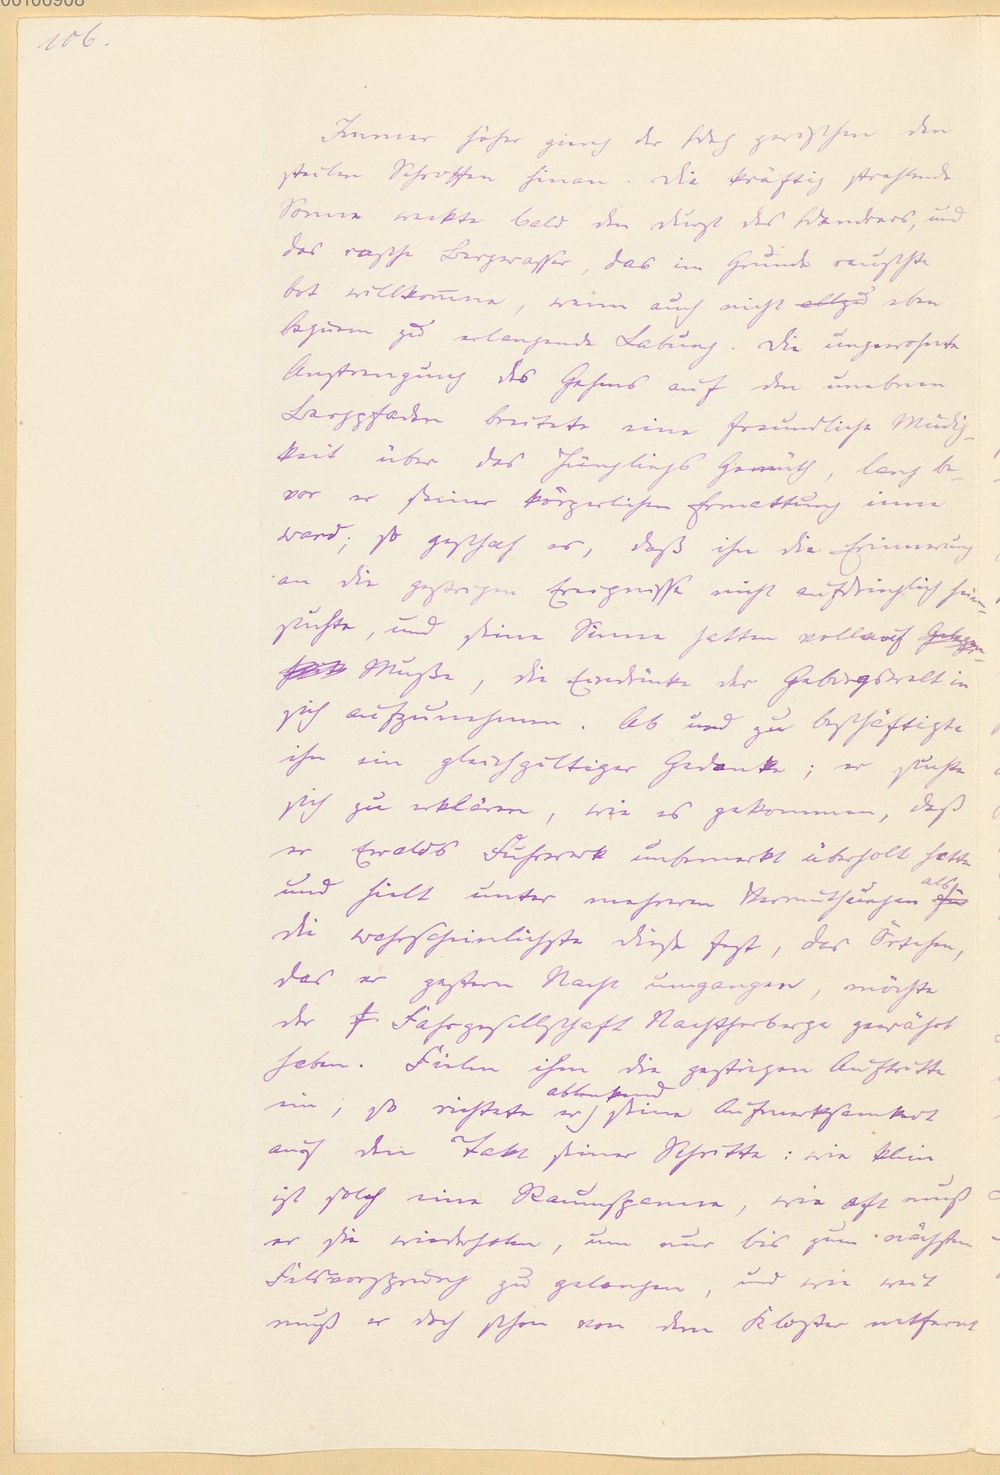 106.
Immer höher gieng der Weg zwischen den
steilen Schroffen hinan. Die kräftig strahlende
Sonne weckte bald den Durst des Wandrers, und
das rasche Bergwasser, das im Grunde rauschte
bot willkom̄ne, wenn auch nicht allzu eben
bequem zu erlangende Labung. Die ungewohnte
Anstrengung des Gehens auf den unebnen
Bergpfaden breitete eine freundliche Müdig-
keit über des Jünglings Gemüth, lang be-
vor er seiner körperlichen Ermattung inne
ward; so geschah es, daß ihn die Erinnerung
an die gestrigen Ereignisse nicht aufdringlich heim-
suchte, und seine Sinne hatten vollauf Gelegen-
heit Muße, die Eindrücke der Gebirgswelt in
sich aufzunehmen. Ab und zu beschäftigte
ihn ein gleichgiltiger Gedanke; er suchte
sich zu erklären, wie es gekommen, daß
er Ewalds Fuhrwerk unbemerkt überholt hatte
als
und hielt unter mehreren Vermuthungen für
die wahrscheinlichste diese fest, das Örtchen,
das er gestern Nacht umgangen, möchte
der F Fahrgesellschaft Nachtherberge gewährt
haben. Fielen ihm die gestrigen Auftritte
ablenkend
ein, so richtete er seine Aufmerksamkeit
auf den Takt seiner Schritte: wie klein
ist solch eine Raumspanne, wie oft muß
er sie wiederholen, um nur bis zum nächsten
Felsvorsprung zu gelangen, und wie weit
muß er doch schon von dem Kloster entfernt